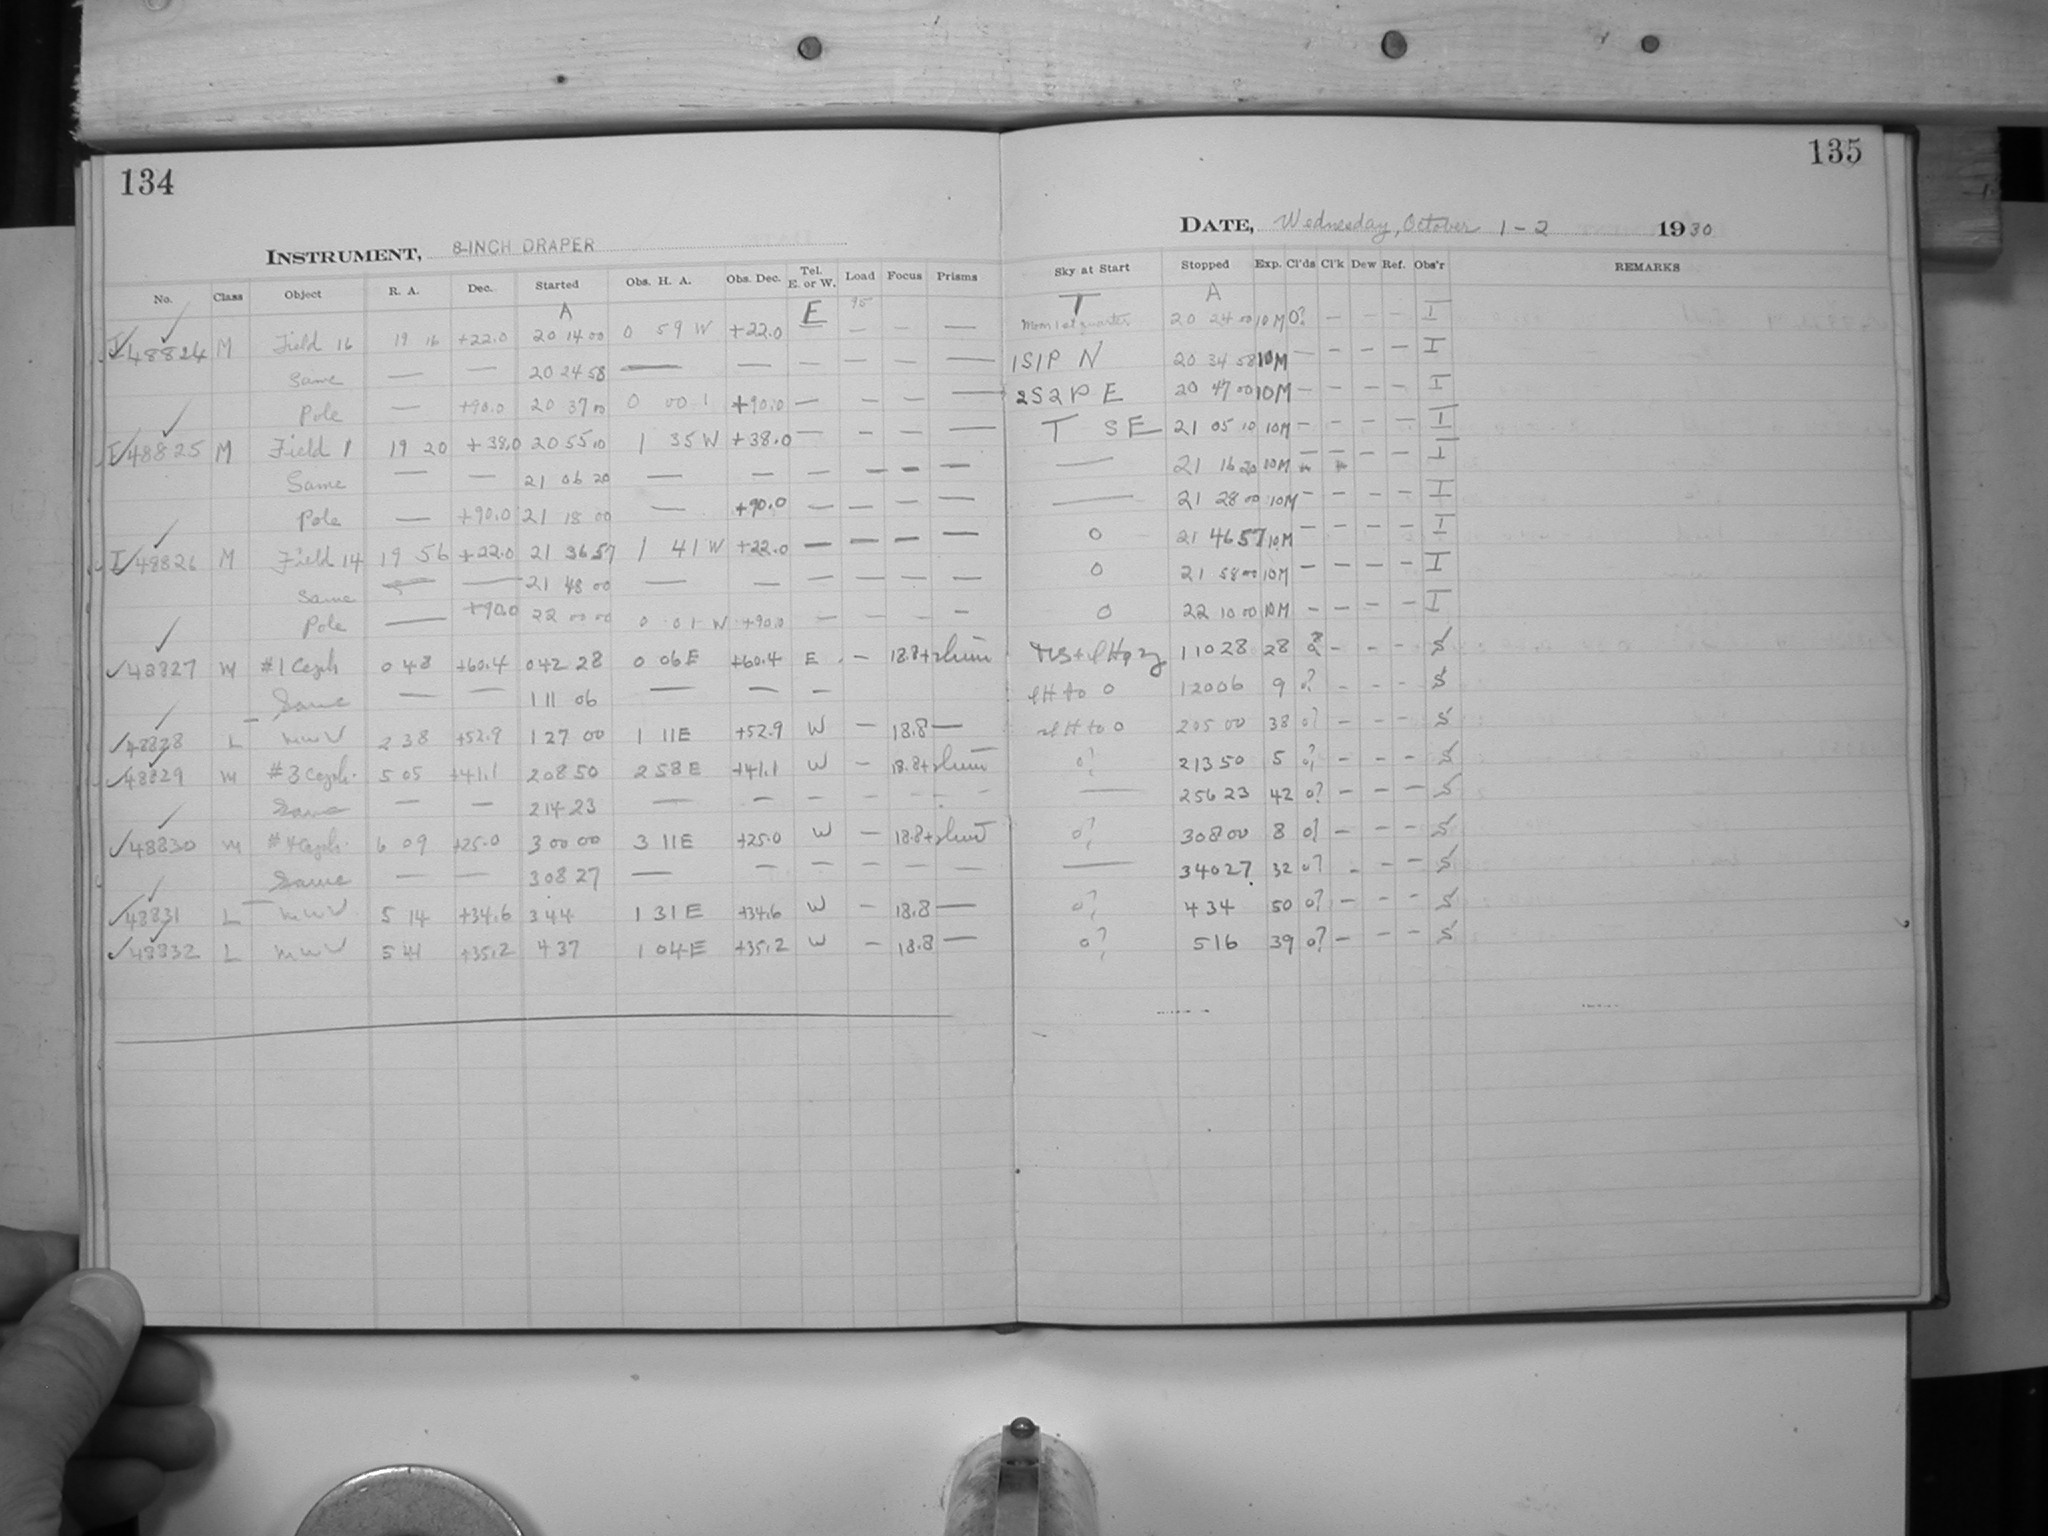 134
INSTRUMENT, 8-INCH DRAPER
No. Class Object R. A. Dec. Started Obs. H. A. Obs. Dec. Tel. E. or W. Load Focus Prisms
A E
I 48824 M Field 16 19 16 +22.0 20 14 00 0 59 W +22.0 — — —
Same — — 20 24 58 — — — — — —
Pole — +90.0 20 37 00 0 00 1 +90.0 — — — —
I 48825 M Field 1 19 20 +38.0 20 55 10 1 35 W +38.0 — — — —
Same — — 21 06 20 — — — — — —
Pole — +90.0 21 18 00 — +90.0 — — — —
I 48826 M Field 14 19 56 +22.0 21 36 57 1 41 W +22.0 — — — —
Same — — 21 48 00 — — — — — —
Pole — +90.0 22 00 00 0 01 W +90.0 — — —
48827 M #1 Ceph 0 48 +60.4 0 42 28 0 06 E +60.4 E — 18.8+
Same — — 1 11 06 — — —
48828 L MWV 2 38 +52.9 1 27 00 1 11 E +52.9 W — 18.8 —
48829 M #3 Ceph. 5 05 +41.1 2 08 50 2 58 E +41.1 W — 18.8+
Same — — 2 14 23 — — — — — —
48830 M #4 Ceph. 6 09 +25.0 3 00 00 3 11 E +25.0 W — 18.8+
Same — — 3 08 27 — — — — — —
48831 L MWV 5 14 +34.6 3 44 1 31 E +34.6 W — 18.8 —
48832 L MWV 5 41 +35.2 4 37 1 04 E +35.2 W — 18.8 —
135
DATE, Wednesday, October 1-2 1930
Sky at Start Stopped Exp. Cl'ds Cl'k Dew Ref. Obs'r REMARKS
T A
Moon 1st quarter 20 24 00 10M 0? — — — I
1S1P N 20 34 58 10M — — — — I
2S2P E 20 47 00 10M — — — — I
T SE 21 05 10 10M — — — — I
— 21 16 20 10M — — — — I
— 21 28 00 10M — — — — I
0 21 46 57 10M — — — — I
0 21 58 00 10M — — — — I
0 22 10 00 10M — — — — I
1 10 28 28 — — — S
H to 0 1 20 06 9 0? — — — S
H to 0 2 05 00 38 0? — — — S
0? 2 13 50 5 0? — — — S
— 2 56 23 42 0? — — — S
0? 3 08 00 8 0? — — — S
— 3 40 27 32 0? — — — S
0? 4 34 50 0? — — — S
0? 5 16 39 0? — — — S